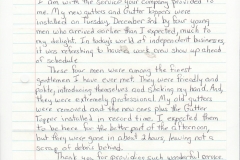 I am with the service your company provided to
me. My new gutters and Gutter Toppers were
installed on Tuesday, December 2nd by four young
men who arrived earlier than I expected much to
my delight. In today's world of independent businesses,
it was refreshing to have a work crew show up ahead
of schedule.
These four men were among the finest
gentlemen I have ever met. They were friendly and
polite, introducing themselves and shaking my hand. And,
they were extremely professional. My old gutters
were removed and the new ones plus the Gutter
Topper installed in record time. I expected them
to be here for the better part of the afternoon,
but they were gone in about 2 hours, leaving not a
scrap of debris behind.
Thank you for providing such wonderful service